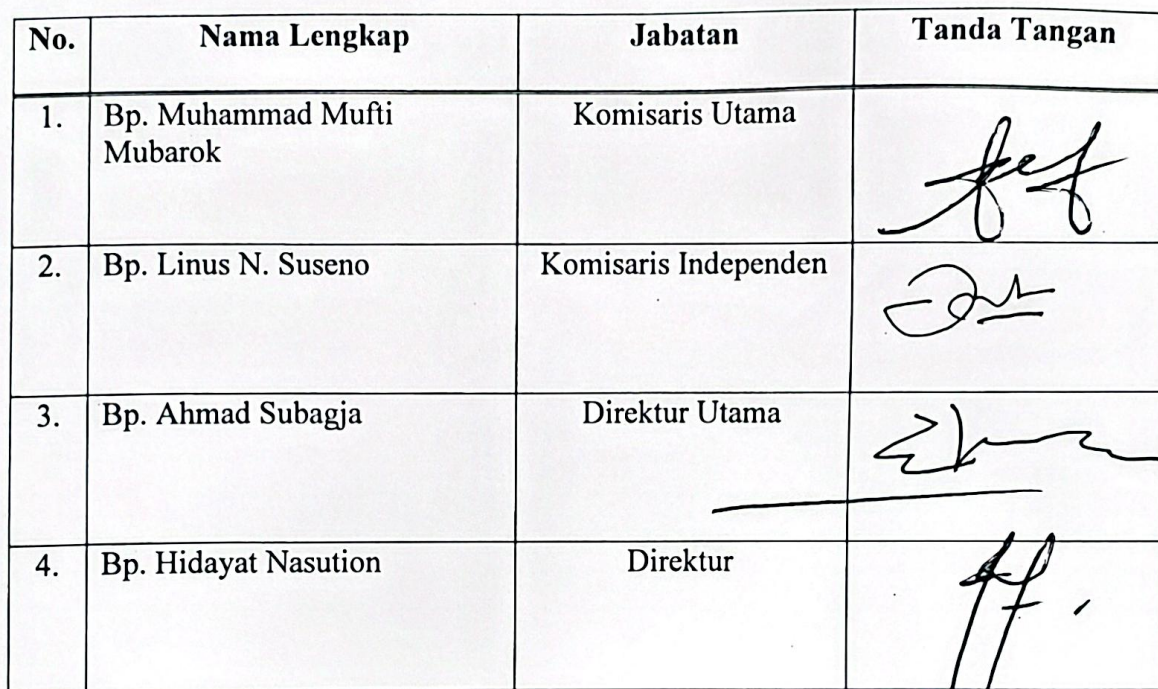 No. Nama Lengkap Jabatan Tanda Tangan
1. Bp. Muhammad Mufti Komisaris Utama
Mubarok
2. Bp. Linus N. Suseno Komisaris Independen
3. Bp. Ahmad Subagja Direktur Utama
4. Bp. Hidayat Nasution Direktur